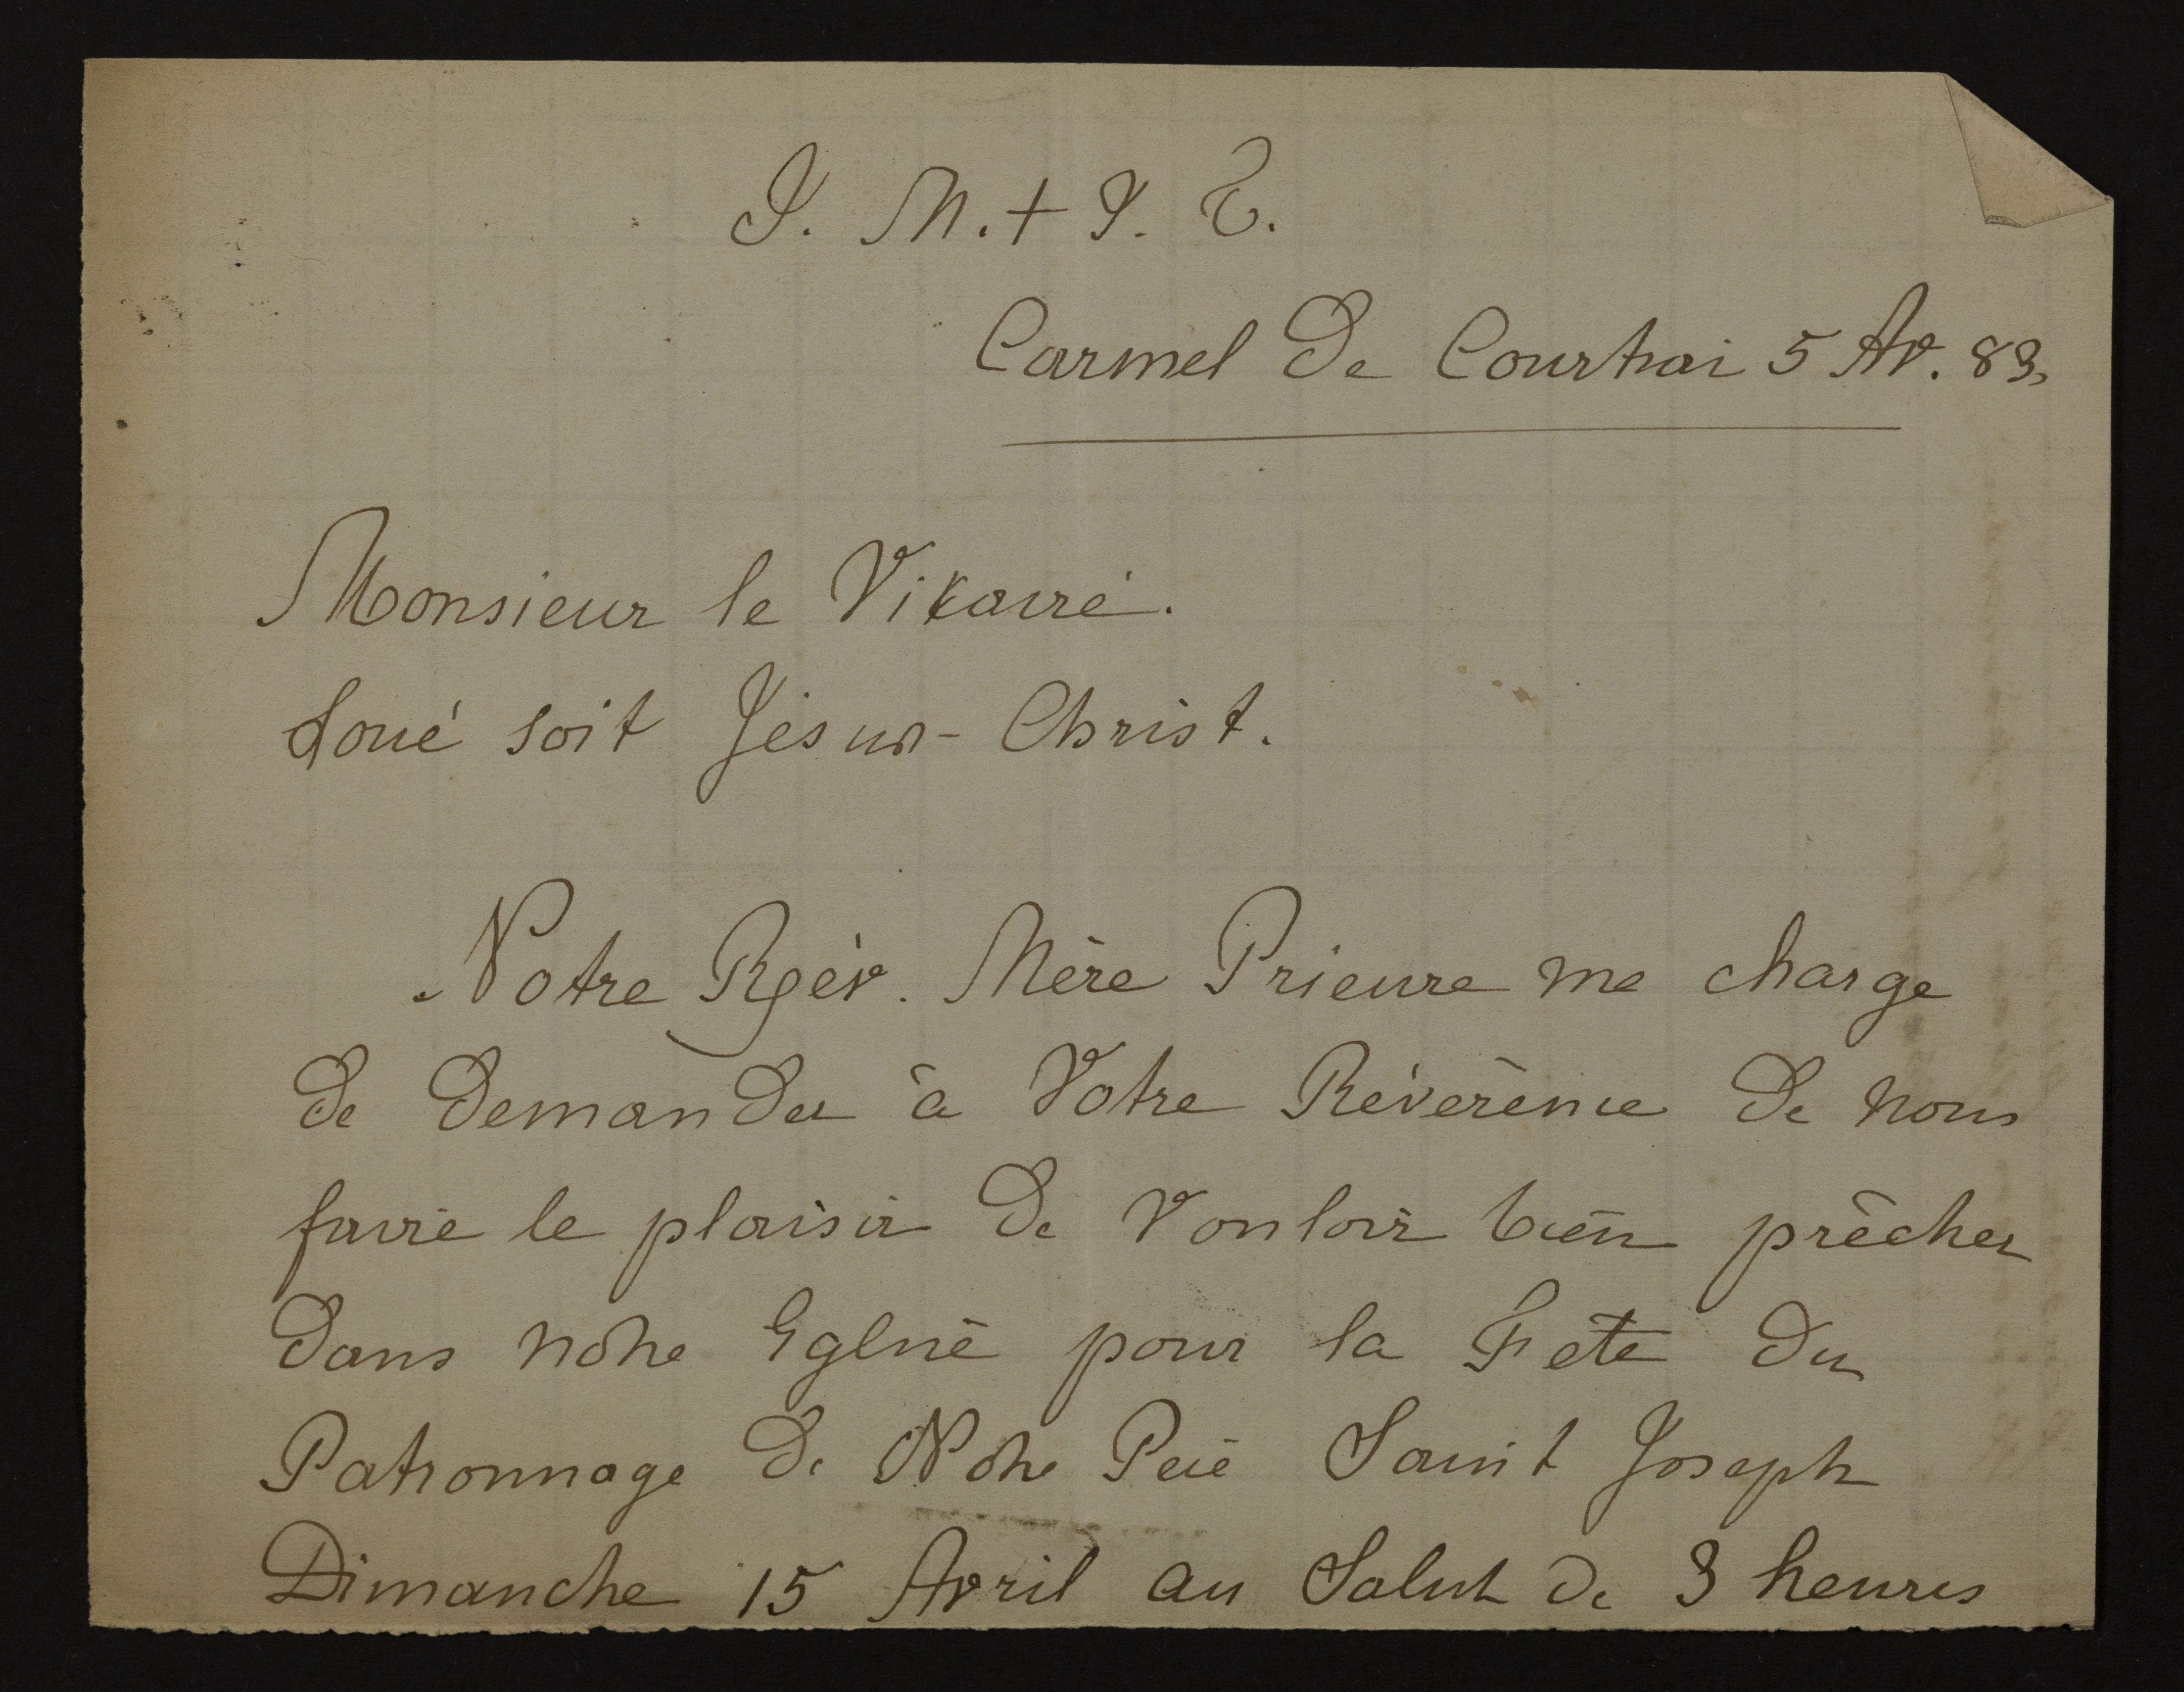 J. M. + J. T.
Carmel de Courtrai 5 Av. 83.
Monsieur le Vikaire.
Loué soit Jésus-Christ.
Notre Rév. Mère Prieure me charge
de demander à Votre Révérence de nous
faire le plaisir de vouloir bien prêcher
dans notre Eglise pour la Fête du
Patronnage de Notre Père Saint Joseph
Dimanche 15 Avril au Salut de 3 heures